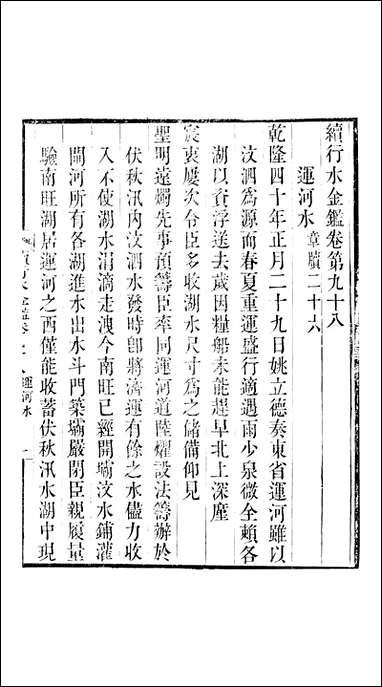 續行水金鑑卷第九十八
運河水 章牘二十六
乾隆四十年正月二十九日姚立德奏東省運河雖以
汶泗為源而春夏重運盛行適遇雨少泉微全賴各
湖以資浮送去歲因糧船未能趕早北上深塵
宸衷屢次令臣多收湖水尺寸為之儲備仰見
聖明遠燭先事預籌臣率同運河道陸燿設法籌辦於
伏秋汛內汶泗水發時卽將濟運有餘之水儘力收
入不使湖水涓滴走洩今南旺已經開壩汶水鋪灌
閘河所有各湖進水出水斗門築壩嚴閉臣親履量
驗南旺湖居運河之西僅能收蓄伏秋汛水湖中現
運河水
一